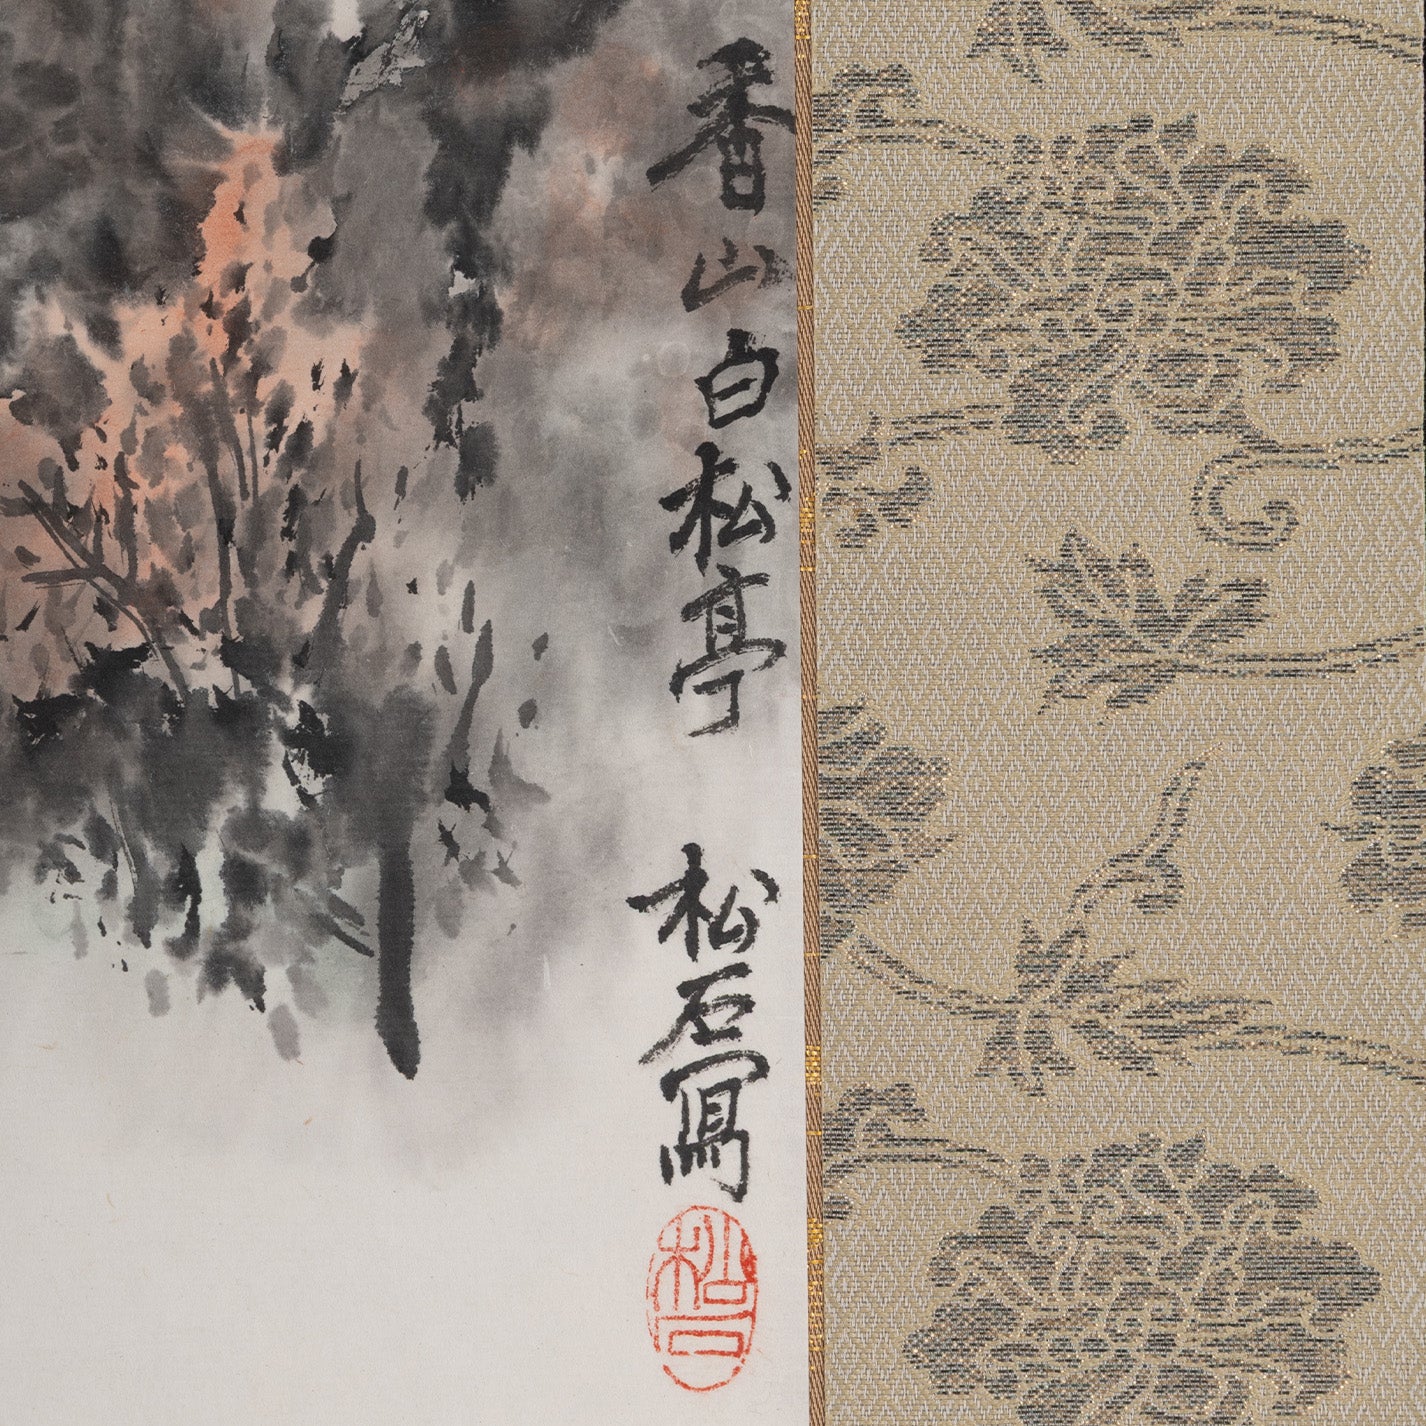 香山白松亭 松石寫
松石